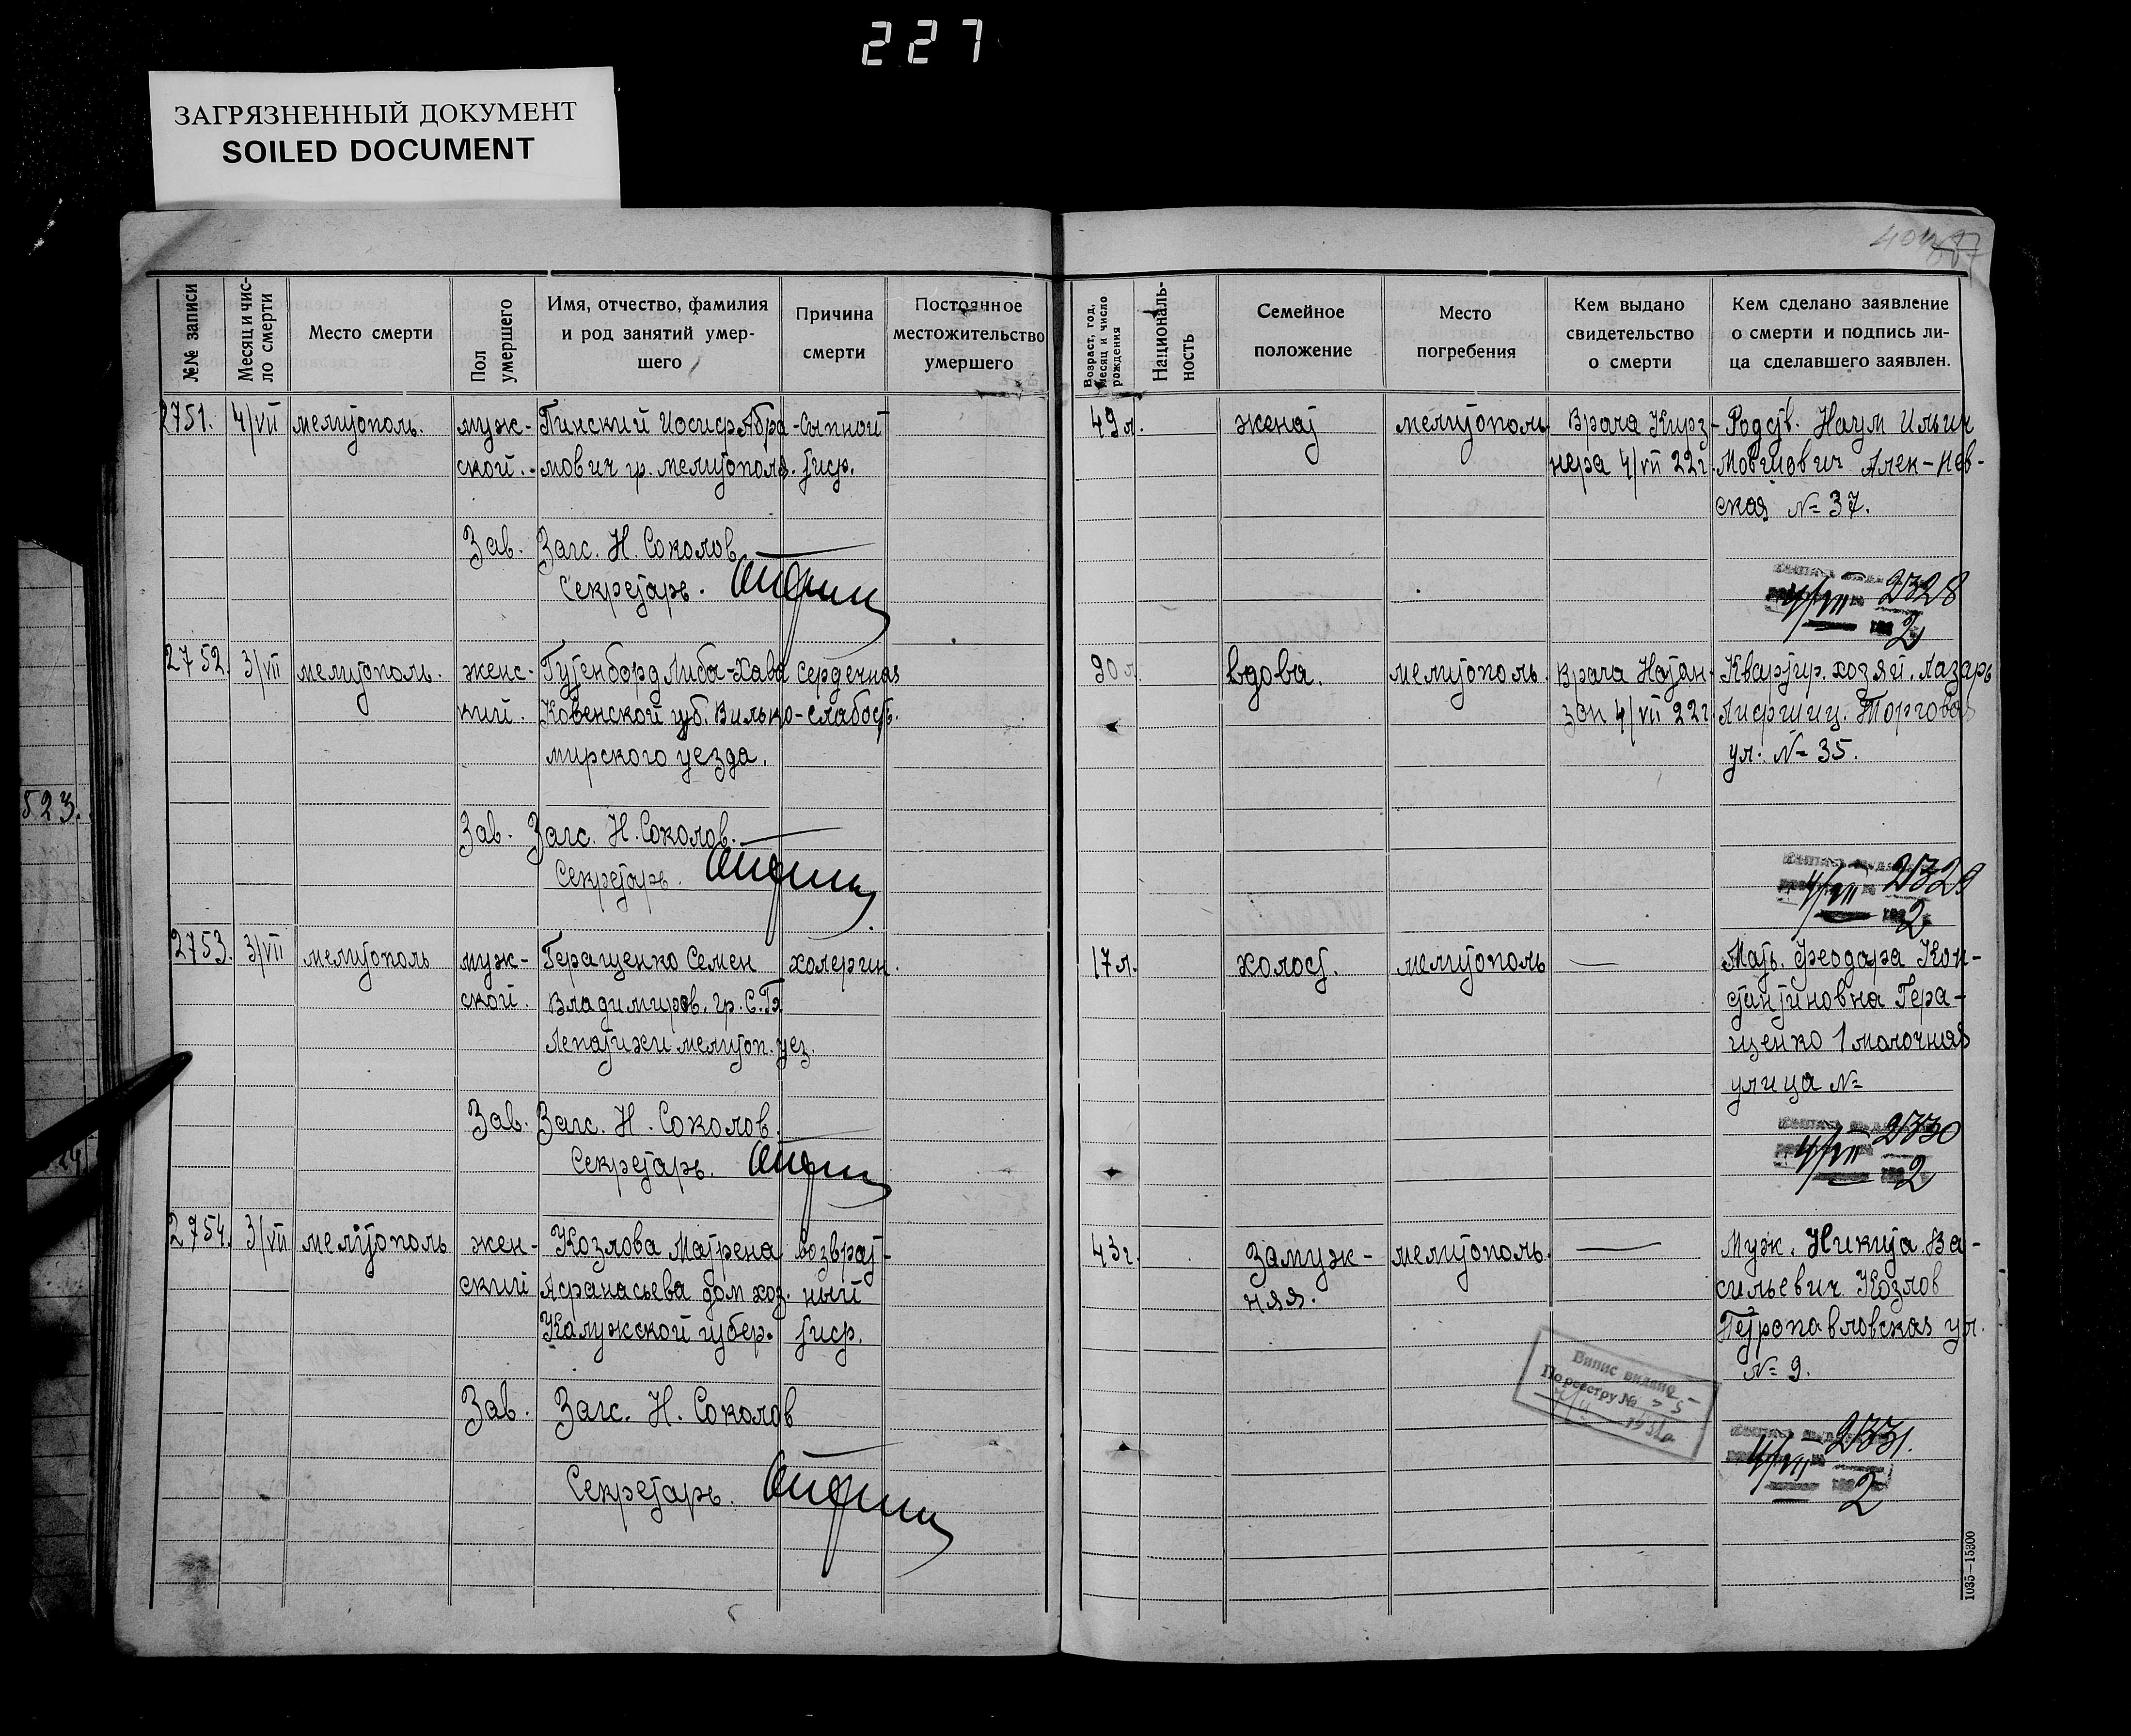 227
ЗАГРЯЗНЕННЫЙ ДОКУМЕНТ
SOILED DOCUMENT
№№ записи
Месяц и чис-
ло смерти
Место смерти
Пол
умершего
Имя, отчество, фамилия
и род занятий умер-
шего
Причина
смерти
Постоянное
местожительство
умершего
Возраст, год,
месяц и число
рождения
Националь-
ность
Семейное
положение
Место
погребения
Кем выдано
свидетельство
о смерти
Кем сделано заявление
о смерти и подпись ли-
ца сделавшего заявлен.
2751. 4/VII мелитополь. муж- Пинский Иосиф Абра- Сыпной 49 л. женат мелитополь Врача Кирз- Родств. Наум Ильич
ской. мович гр. мелитополя. тиф. нера 4/VII 22г. Алек-Нев-
ская № 37.
Зав. Загс. Н. Соколов
Секретарь.
4/VII 2328
2
2752. 3/VII мелитополь. женс- Гутенборд Либа-Хава Сердечная 90 л. вдова. мелитополь. Врача Натан- Квартир. хозяй. Лазарь
кий. Ковенской губ. Вилько- слабость. зон 4/VII 22г. Лифшиц. Торговая
мирского уезда. ул. № 35.
Зав. Загс. Н. Соколов.
Секретарь.
4/VII 2329
2
2753. 3/VII мелитополь муж- Геращенко Семен холерин. 17 л. холост. мелитополь — Мать. Феодора Кон-
ской. Владимиров. гр. С. стантиновна Гера-
мелитоп. уез. щенко 1 молочная
улица №
Зав. Загс. Н. Соколов.
Секретарь.
4/VII 2330
2
2754. 3/VII мелитополь жен- Козлова Матрена возврат- 43 г. Замуж- мелитополь. — Муж. Никита Ва-
ский Афанасьева дом. хоз. ный няя. сильевич Козлов
Калужской губер. тиф. Петропавловская ул.
№ 9.
Зав. Загс. Н. Соколов
Секретарь.
Випис видано
По реестру №
4/VII 2331.
2
1035—15300
523.